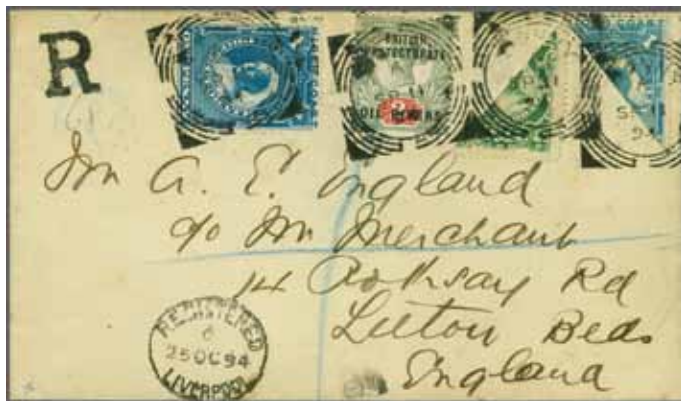 R
BRITISH
PROTECTORATE
OIL RIVERS
COAST
SP
94
Mr A. E. England
c/o Mr Merchant
14 Rothsay Rd
Luton Beds
England
REGISTERED
6
25 OC 94
LIVERPOOL